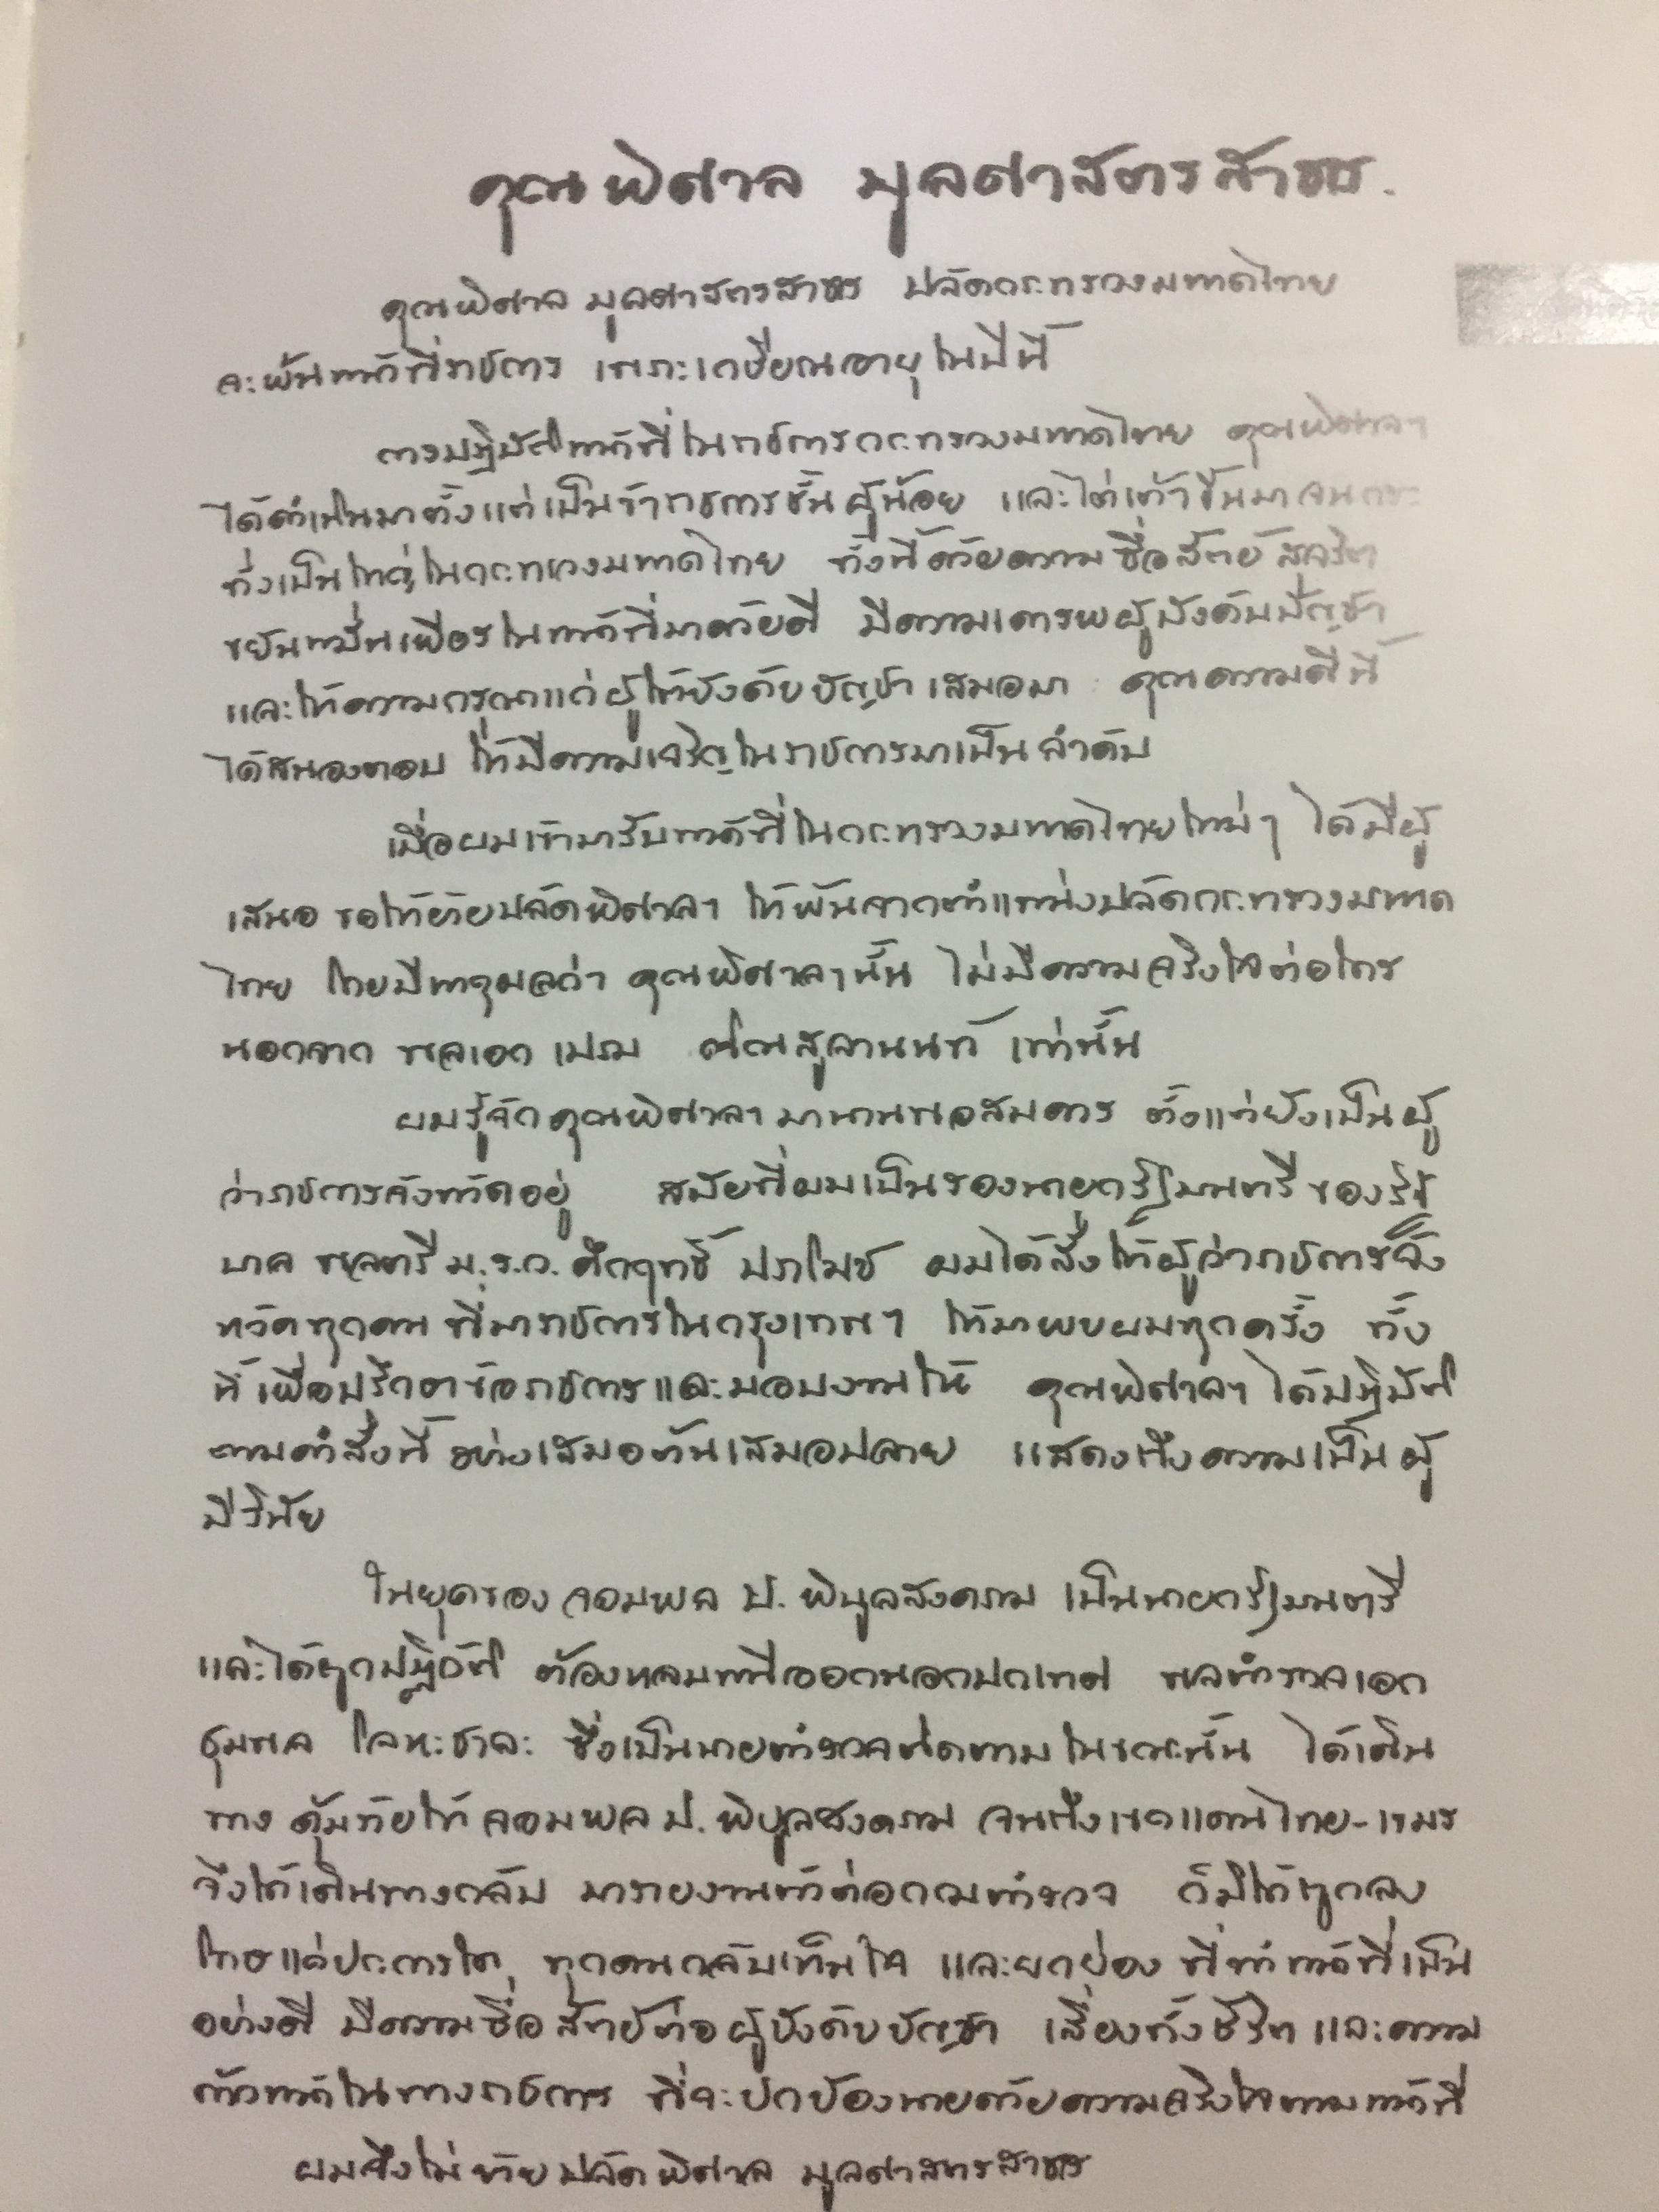 คุณพิศาล มูลศาสตรสาทร.
คุณพิศาล มูลศาสตรสาทร ปลัดกระทรวงมหาดไทย
จะพ้นหน้าที่ราชการ เพราะเกษียณอายุในปีนี้
การปฏิบัติหน้าที่ในราชการกระทรวงมหาดไทย คุณพิศาลฯ
ได้ดำเนินมาตั้งแต่เป็นข้าราชการชั้นผู้น้อย และไต่เต้าขึ้นมาจนกระ
ทั่งเป็นใหญ่ในกระทรวงมหาดไทย ทั้งนี้ด้วยความซื่อสัตย์ สุจริต
ขยันหมั่นเพียรในหน้าที่มาด้วยดี มีความเคารพผู้บังคับบัญชา
และให้ความกรุณาแก่ผู้ใต้บังคับบัญชาเสมอมา คุณความดีนี้
ได้สนองตอบ ให้มีความเจริญในราชการมาเป็นลำดับ
เมื่อผมเข้ามารับหน้าที่ในกระทรวงมหาดไทยใหม่ๆ ได้มีผู้
เสนอ ขอให้ย้ายปลัดพิศาลฯ ให้พ้นจากตำแหน่งปลัดกระทรวงมหาด
ไทย โดยมีเหตุผลว่า คุณพิศาลฯนั้น ไม่มีความจริงใจต่อใคร
นอกจาก พลเอก เปรม ติณสูลานนท์ เท่านั้น
ผมรู้จักคุณพิศาลฯ มานานพอสมควร ตั้งแต่ยังเป็นผู้
ว่าราชการจังหวัดอยู่ สมัยที่ผมเป็นรองนายกรัฐมนตรี ของรัฐ
บาล พลตรี ม.ร.ว. คึกฤทธิ์ ปราโมช ผมได้สั่งให้ผู้ว่าราชการจัง
หวัดทุกคน ที่มาราชการในกรุงเทพฯ ให้มาพบผมทุกครั้ง ทั้ง
นี้ เพื่อปรึกษาข้อราชการและมอบงานให้ คุณพิศาลฯ ได้ปฏิบัติ
ตามคำสั่งนี้ อย่างเสมอต้นเสมอปลาย แสดงถึงความเป็นผู้
มีวินัย
ในยุคของ จอมพล ป. พิบูลสงคราม เป็นนายกรัฐมนตรี
และได้ถูกปฏิวัติ ต้องหลบหนีออกนอกประเทศ พลตำรวจเอก
ชุมพล โลหะชาละ ซึ่งเป็นนายตำรวจติดตามในขณะนั้น ได้เดิน
ทาง คุ้มภัยให้ จอมพล ป. พิบูลสงคราม จนถึงเขตแดนไทย-เขมร
จึงได้เดินทางกลับ มารายงานตัวต่อกรมตำรวจ ก็มิได้ถูกลง
โทษแต่ประการใด ทุกคนกลับเห็นใจ และยกย่อง ที่ทำหน้าที่เป็น
อย่างดี มีความซื่อสัตย์ต่อผู้บังคับบัญชา เสี่ยงทั้งชีวิต และความ
ก้าวหน้าในทางราชการ ที่จะปกป้องนายด้วยความจริงใจตามหน้าที่
ผมจึงไม่ย้ายปลัด พิศาล มูลศาสตรสาทร